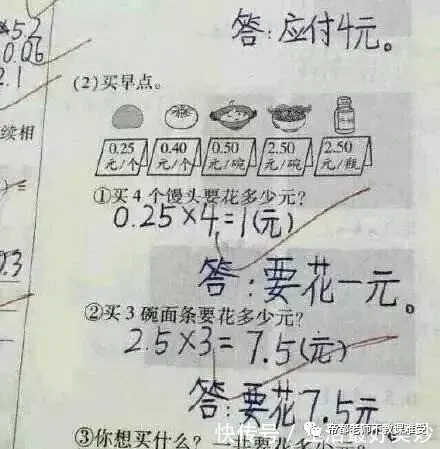 ×5.2
0.06
2.1
答:应付4元。
(2)买早点。
续相
0.25 0.40 0.50 2.50 2.50
元/个 元/个 元/碗 元/碗 元/瓶
①买4个馒头要花多少元?
0.25×4=1(元)
0.3
答:要花一元。
②买3碗面条要花多少元?
2.5×3=7.5(元)
答:要花7.5元
③你想买什么?一共要花多少元?
快传号/